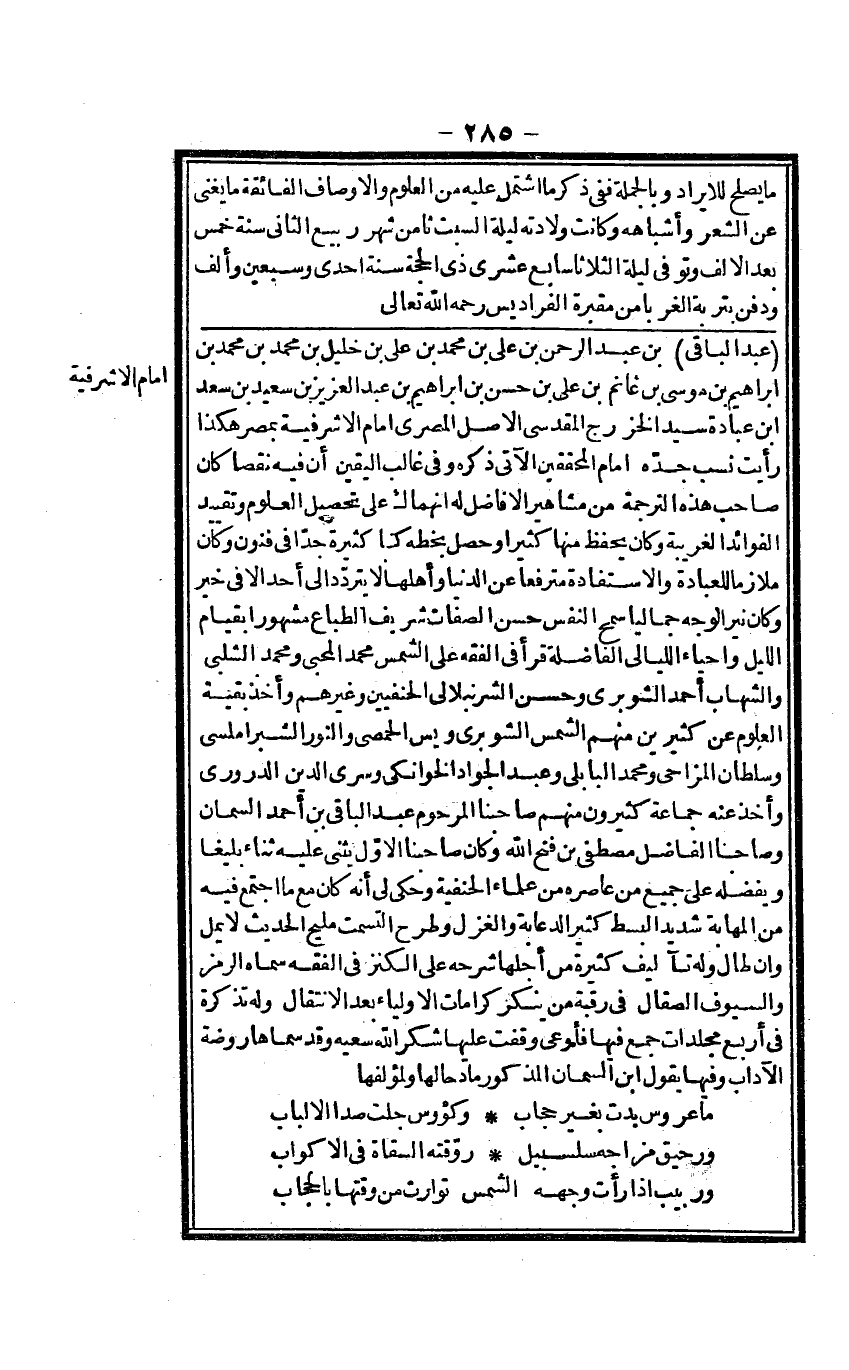 - ٢٨٥ -
ما يصلح للايراد وبالجملة ففى ذكر ما اشتمل عليه من العلوم والاوصاف الفائقة ما يغنى
عن الشعر وأشباهه وكانت ولادته ليلة السبت ثامن شهر ربيع الثانى سنة خمس
بعد الالف وتوفى ليلة الثلاثا سابع عشرى ذى الحجة سنة احدى وسبعين وألف
ودفن بتربة الغربا من مقبرة الفراديس رحمه الله تعالى
(عبد الباقى) بن عبد الرحمن بن على بن محمد بن على بن خليل بن محمد بن محمد بن
امام الاشرفية
ابراهيم بن موسى بن غانم بن على بن حسن بن ابراهيم بن عبد العزيز بن سعيد بن سعد
ابن عبادة سيد الخزرج المقدسى الاصل المصرى امام الاشرفية بمصر هكذا
رأيت نسب جده امام المحققين الآتى ذكره وفى غالب اليقين أن فيه نقصا كان
صاحب هذه الترجمة من مشاهير الافاضل له انهماك على تحصيل العلوم وتقييد
الفوائد الغريبة وكان يحفظ منها كثيرا وحصل بخطه كتبا كثيرة جدّا فى فنون وكان
ملازما للعبادة والاستفادة مترفعا عن الدنيا وأهلها لا يتردّد الى أحد الا فى خير
وكان نير الوجه جماليا سمح النفس حسن الصفات شريف الطباع مشهورا بقيام
الليل واحياء الليالى الفاضلة قرأ فى الفقه على الشمس محمد المحبى ومحمد الشلبى
والشهاب أحمد الشوبرى وحسن الشرنبلالى الحنفيين وغيرهم وأخذ بقية
العلوم عن كثيرين منهم الشمس الشوبرى ويس الحمصى والنور الشبراملسى
وسلطان المزاحى ومحمد البابلى وعبد الجواد الخوانكى وسرى الدين الدرورى
وأخذ عنه جماعة كثيرون منهم صاحبنا المرحوم عبد الباقى بن أحمد السمان
وصاحبنا الفاضل مصطفى بن فتح الله وكان صاحبنا الاوّل يثنى عليه ثناء بليغا
ويفضله على جميع من عاصره من علماء الحنفية وحكى لى أنه كان مع ما اجتمع فيه
من المهابة شديد البسط كثير الدعابة والغزل وطرح التسمت مليح الحديث لا يمل
وان طال وله تآليف كثيرة من أجلها شرحه على الكنز فى الفقه سماه الرمز
والسيوف الصقال فى رقبة من ينكر كرامات الاولياء بعد الانتقال وله تذكرة
فى أربع مجلدات جمع فيها فأوعى وقفت عليها شكر الله سعيه وقد سماها روضة
الآداب وفيها يقول ابن السمان المذكور مادحا لها ولمؤلفها
ما عروس بدت بغير حجاب * وكؤوس جلت صدا الالباب
ورحيق مزاجه سلسبيل * روّقته السقاة فى الاكواب
وربيب اذا رأت وجهه الشمس توارت من وقتها بالحجاب